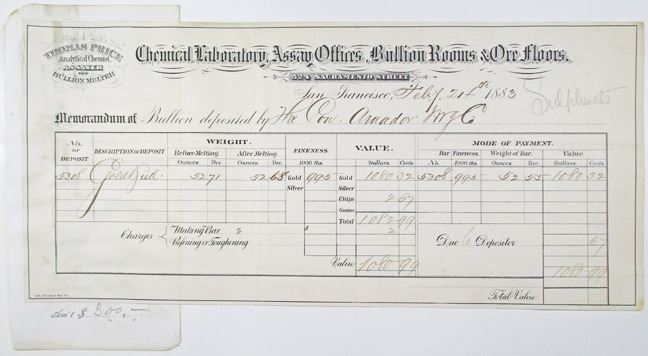 THOMAS PRICE
Analytical Chemist,
ASSAYER
AND
BULLION MELTER
Chemical Laboratory, Assay Offices, Bullion Rooms & Ore Floors.
524 SACRAMENTO STREET
San Francisco, Feby. 24th 1883
Sulphurets
Memorandum of Bullion deposited by The Con. Amador Mg Co
No. OF DEPOSIT DESCRIPTION OF DEPOSIT WEIGHT. FINENESS VALUE. MODE OF PAYMENT.
Before Melting After Melting 1000 ths Bar Fineness. Weight of Bar. Value
Ounces Dec. Ounces Dec. Dollars. Cents No. 1000 ths Ounces Dec. Dollars. Cents.
5308 Gold 52 71 52 58 Gold 992 1080 32 5308 992 52 55 1080 32
Silver
Chips 2 67
Grains
Total 1082 99
Charges Making Bar 2 $ 2
Refining or Toughening Due to Depositor 67
Value 1080 99 1080 99
Total Value
Am't $ 300